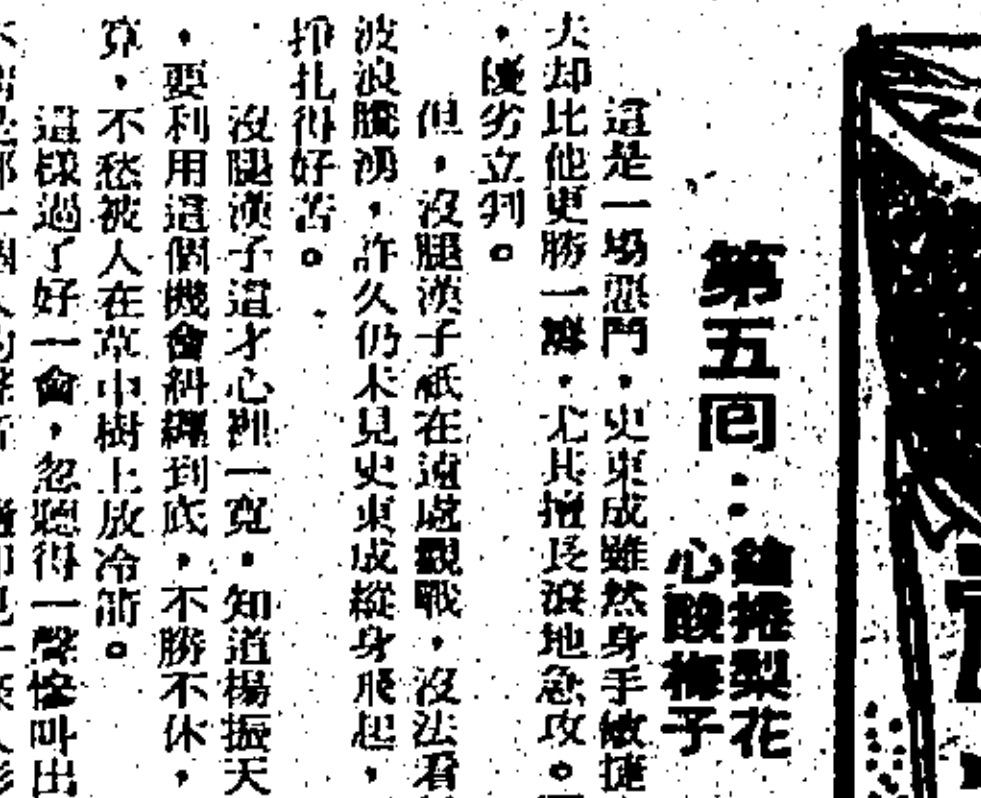 第五回：
鎗捲梨花
心酸梅子
這是一場惡鬥，史東成雖然身手敏捷
夫却比他更勝一籌，尤其擅長滾地急攻。
，優劣立判。
但，沒腿漢子祇在遠處觀戰，沒法看
波浪騰湧，許久仍未見史東成縱身飛起，
掙扎得好苦。
沒腿漢子這才心裡一寬，知道楊振天
，要利用這個機會糾纏到底，不勝不休，
算，不愁被人在草中樹上放冷箭。
這樣過了好一會，忽聽得一聲慘叫出